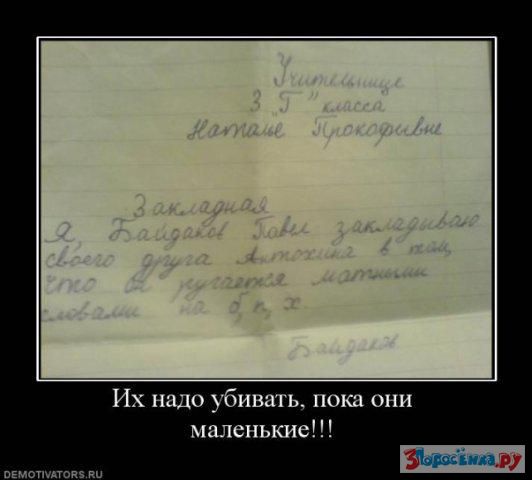 Учительнице
3 "Г" класса
Наталье Прокофивне
Закладная
Я, Байдаков Павел закладываю
своего друга Антохина в том,
что он ругается матными
словами на б, п, х.
Байдаков
Их надо убивать, пока они
маленькие!!!
3Поросёнка.ру
DEMOTIVATORS.RU